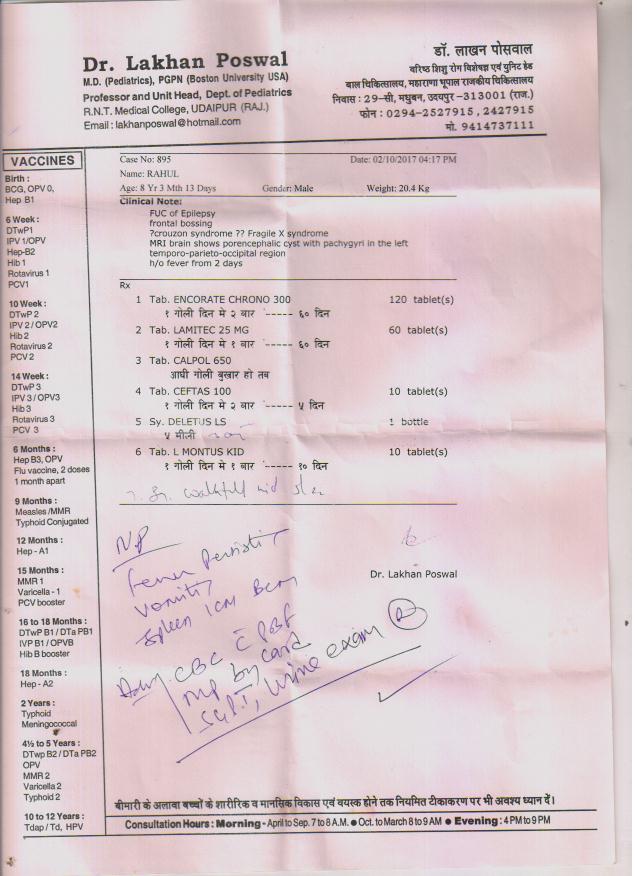 Dr. Lakhan Poswal
M.D. (Pediatrics), PGPN (Boston University USA)
Professor and Unit Head, Dept. of Pediatrics
R.N.T. Medical College, UDAIPUR (RAJ.)
Email : lakhanposwal@hotmail.com
डॉ. लाखन पोसवाल
वरिष्ठ शिशु रोग विशेषज्ञ एवं युनिट हेड
बाल चिकित्सालय, महाराणा भूपाल राजकीय चिकित्सालय
निवास : 29-सी, मधुबन, उदयपुर -313001 (राज.)
फोन : 0294-2527915, 2427915
मो. 9414737111
VACCINES
Birth :
BCG, OPV 0,
Hep B1
6 Week :
DTwP1
IPV 1/OPV
Hep-B2
Hib 1
Rotavirus 1
PCV1
10 Week :
DTwP 2
IPV 2 / OPV2
Hib 2
Rotavirus 2
PCV 2
14 Week :
DTwP 3
IPV 3 / OPV3
Hib 3
Rotavirus 3
PCV 3
6 Months :
Hep B3, OPV
Flu vaccine, 2 doses
1 month apart
9 Months :
Measles /MMR
Typhoid Conjugated
12 Months :
Hep - A1
15 Months :
MMR 1
Varicella - 1
PCV booster
16 to 18 Months :
DTwP B1 / DTa PB1
IVP B1 / OPVB
Hib B booster
18 Months :
Hep - A2
2 Years :
Typhoid
Meningococcal
4½ to 5 Years :
DTwp B2 / DTa PB2
OPV
MMR 2
Varicella 2
Typhoid 2
10 to 12 Years :
Tdap / Td, HPV
Case No: 895 Date: 02/10/2017 04:17 PM
Name: RAHUL
Age: 8 Yr 3 Mth 13 Days Gender: Male Weight: 20.4 Kg
Clinical Note:
FUC of Epilepsy
frontal bossing
?crouzon syndrome ?? Fragile X syndrome
MRI brain shows porencephalic cyst with pachygyri in the left
temporo-parieto-occipital region
h/o fever from 2 days
Rx
1 Tab. ENCORATE CHRONO 300 120 tablet(s)
१ गोली दिन मे २ बार '----- ६० दिन
2 Tab. LAMITEC 25 MG 60 tablet(s)
१ गोली दिन मे १ बार '----- ६० दिन
3 Tab. CALPOL 650
आधी गोली बुखार हो तब
4 Tab. CEFTAS 100 10 tablet(s)
१ गोली दिन मे २ बार '----- ५ दिन
5 Sy. DELETUS LS 1 bottle
५ मीली
6 Tab. L MONTUS KID 10 tablet(s)
१ गोली दिन मे १ बार '----- १० दिन
7.
Fever
Spleen 1cm
Adv. CBC c PBF
MP by card
SGPT, Urine exam
Dr. Lakhan Poswal
बीमारी के अलावा बच्चों के शारीरिक व मानसिक विकास एवं वयस्क होने तक नियमित टीकाकरण पर भी अवश्य ध्यान दें।
Consultation Hours : Morning - April to Sep. 7 to 8 A.M. ● Oct. to March 8 to 9 AM ● Evening : 4 PM to 9 PM